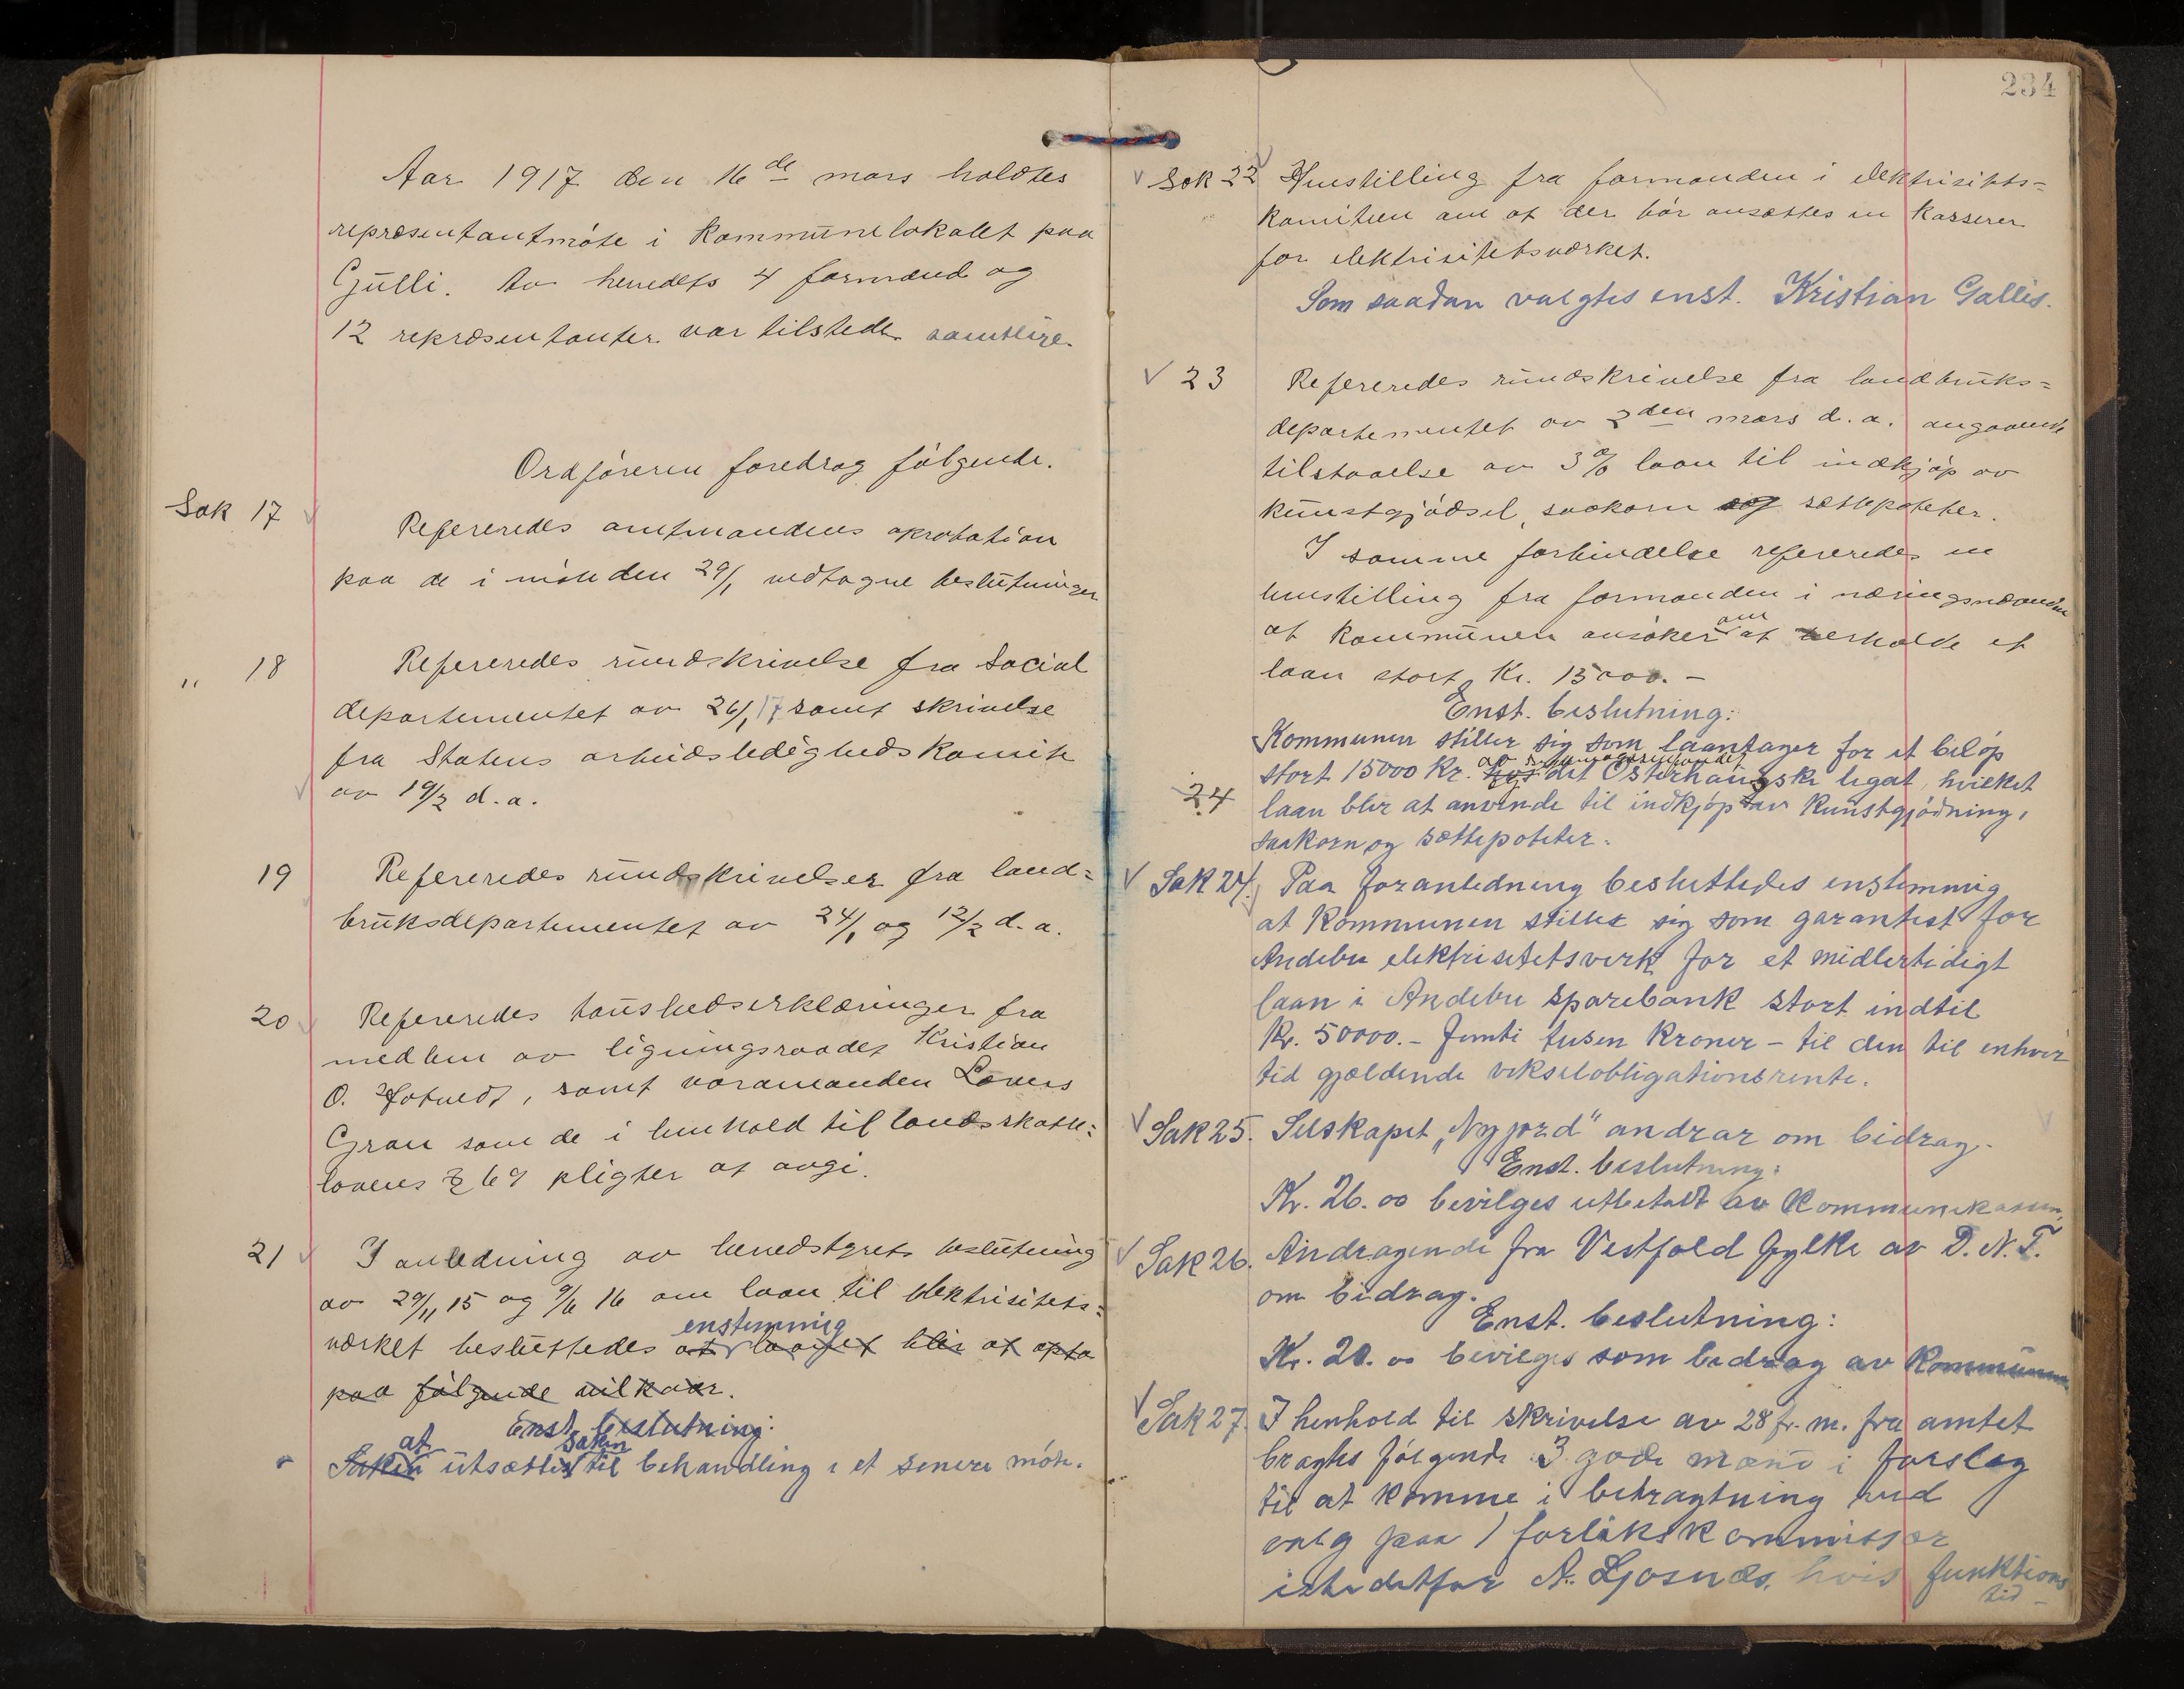 Aar 1917 den 16de mars holdtes
repræsentantmöte i Kommunelokalet paa
Gjulli. Av herredets 4 formænd og
12 repræsentanter var tilstede samtlige.
Ordföreren foredrog fölgende.
Sak 17
Refereredes amtmandens aprobation
paa de i möte den 29/1 vedtagne beslutninger
" 18
Refereredes rundskrivelse fra Social
departementet av 26/1 17 samt skrivelse
fra Statens arbeidsledigheds komite
av 19/2 d. a.
19
Refereredes rundskrivelser fra land=
bruksdepartementet av 24/1 og 12/2 d. a.
20
Refereredes taushedserklæringer fra
medlem av ligningsraadet Kristian
O. Hotvedt, samt varamanden Lovens
Gran som de i henhold til landsskatte=
lovens § 69 pligter at avgi.
21
I anledning av herredstyrets beslutning
av 29/11 15 og 9/6 16 om laan til elektrisitets=
enstemmig
værket besluttedes at laanet blir at opta
paa fölgende vilkaar.
Enst. beslutning:
at saken
Saken utsættes til behandling i et senere möte.
234
Sak 22 Henstilling fra formanden i elektrisitets=
Komiteen om at der bör ansættes en Kasserer
for elektrisitetsværket.
Som saadan valgtes enst. Kristian Gallis.
23 Refereredes rundskrivelse fra landbruks=
departementet av 2den mars d. a. angaaende
tilstaaelse av 3% laan til indkjöp av
kunstgjödsel, saakorn og sættepoteter.
I samme forbindelse refereredes en
henstilling fra formanden i næringsnævnden
om
at Kommunen ansöker at erholde et
laan stort Kr. 15000. –
Enst. beslutning:
Kommunen stiller sig som laantager for et belöp
stort 15000 Kr. hos det Österhaugske legat, hvilket
24
laan blir at anvende til indkjöp av Kunstgjödning,
saakorn og sættepoteter.
Sak 24. Paa foranledning besluttedes enstemmig
at Kommunen stiller sig som garantist for
Andebu elektrisitetsverk for et midlertidigt
laan i Andebu sparebank stort indtil
Kr. 50000.– femti tusen Kroner – til den til enhver
tid gjældende vekselobligationsrente.
Sak 25. Selskapet „Ny jord" andrar om bidrag.
Enst. beslutning:
Kr. 26.00 bevilges utbetalt av Kommunekassen.
Sak 26. Andragende fra Vestfold fylke av D. N. T.
om bidrag.
Enst. beslutning:
Kr. 20.00 bevilges som bidrag av Kommunen
Sak 27. I henhold til skrivelse av 28 f. m. fra amtet
bragtes fölgende 3 gode mænd i forslag
til at komme i betragtning ved
valg paa 1 forlikskommissær
istedetfor A. Gjosnæs, hvis funktions
tid –